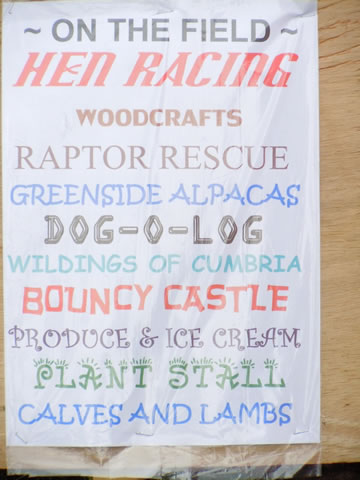 ~ ON THE FIELD ~
HEN RACING
WOODCRAFTS
RAPTOR RESCUE
GREENSIDE ALPACAS
DOG-O-LOG
WILDINGS OF CUMBRIA
BOUNCY CASTLE
PRODUCE & ICE CREAM
PLANT STALL
CALVES AND LAMBS